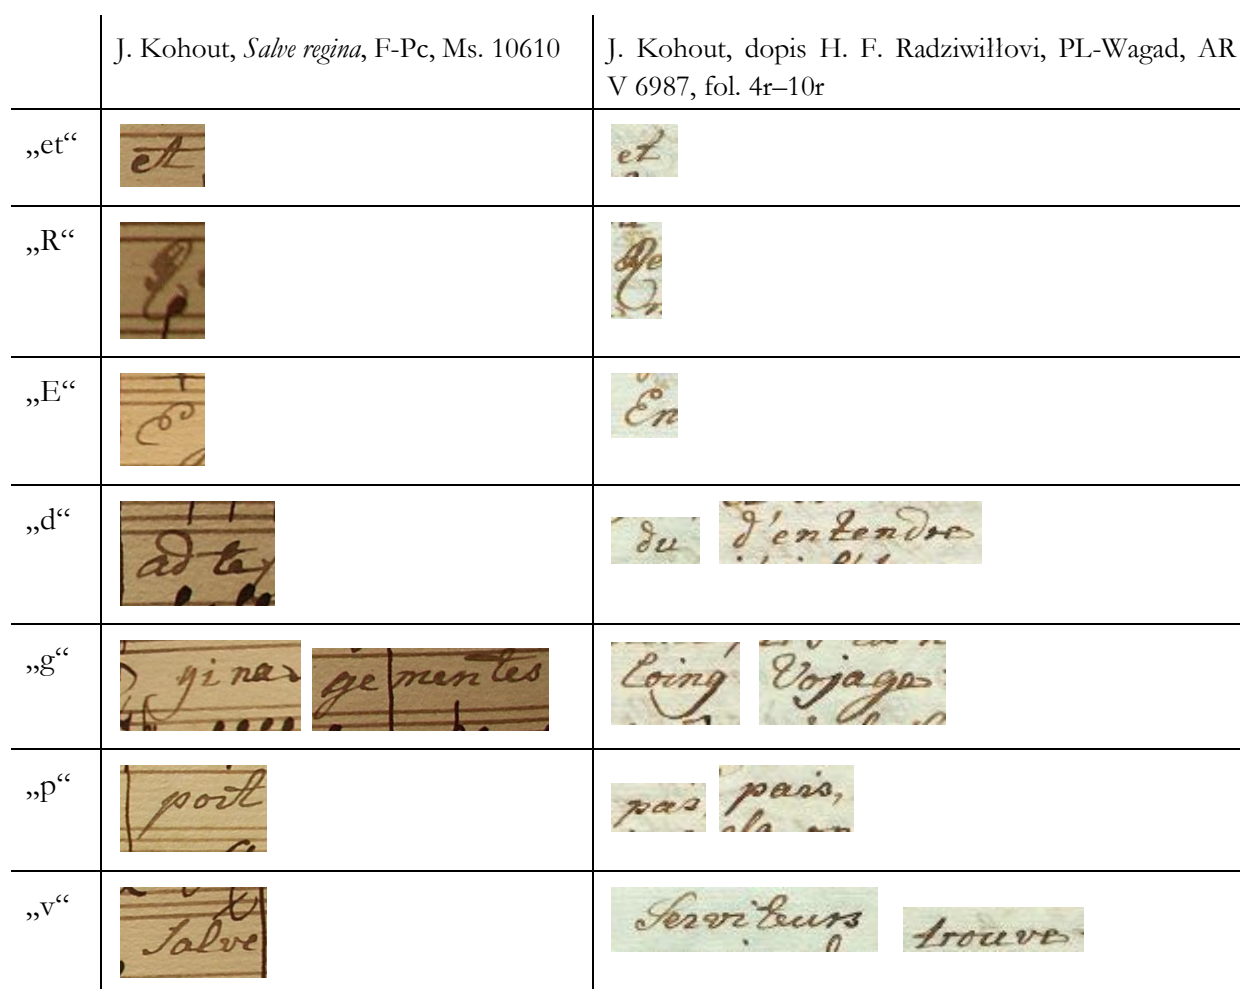 J. Kohout, Salve regina, F-Pc, Ms. 10610
J. Kohout, dopis H. F. Radziwiłłovi, PL-Wagad, AR
V 6987, fol. 4r–10r
„et“ et et
„R“ Re
„E“ E En
„d“ ad te du d'entendre
„g“ gina gementes Coing Vojage
„p“ post pas pais,
„v“ Salve Serviteurs trouve